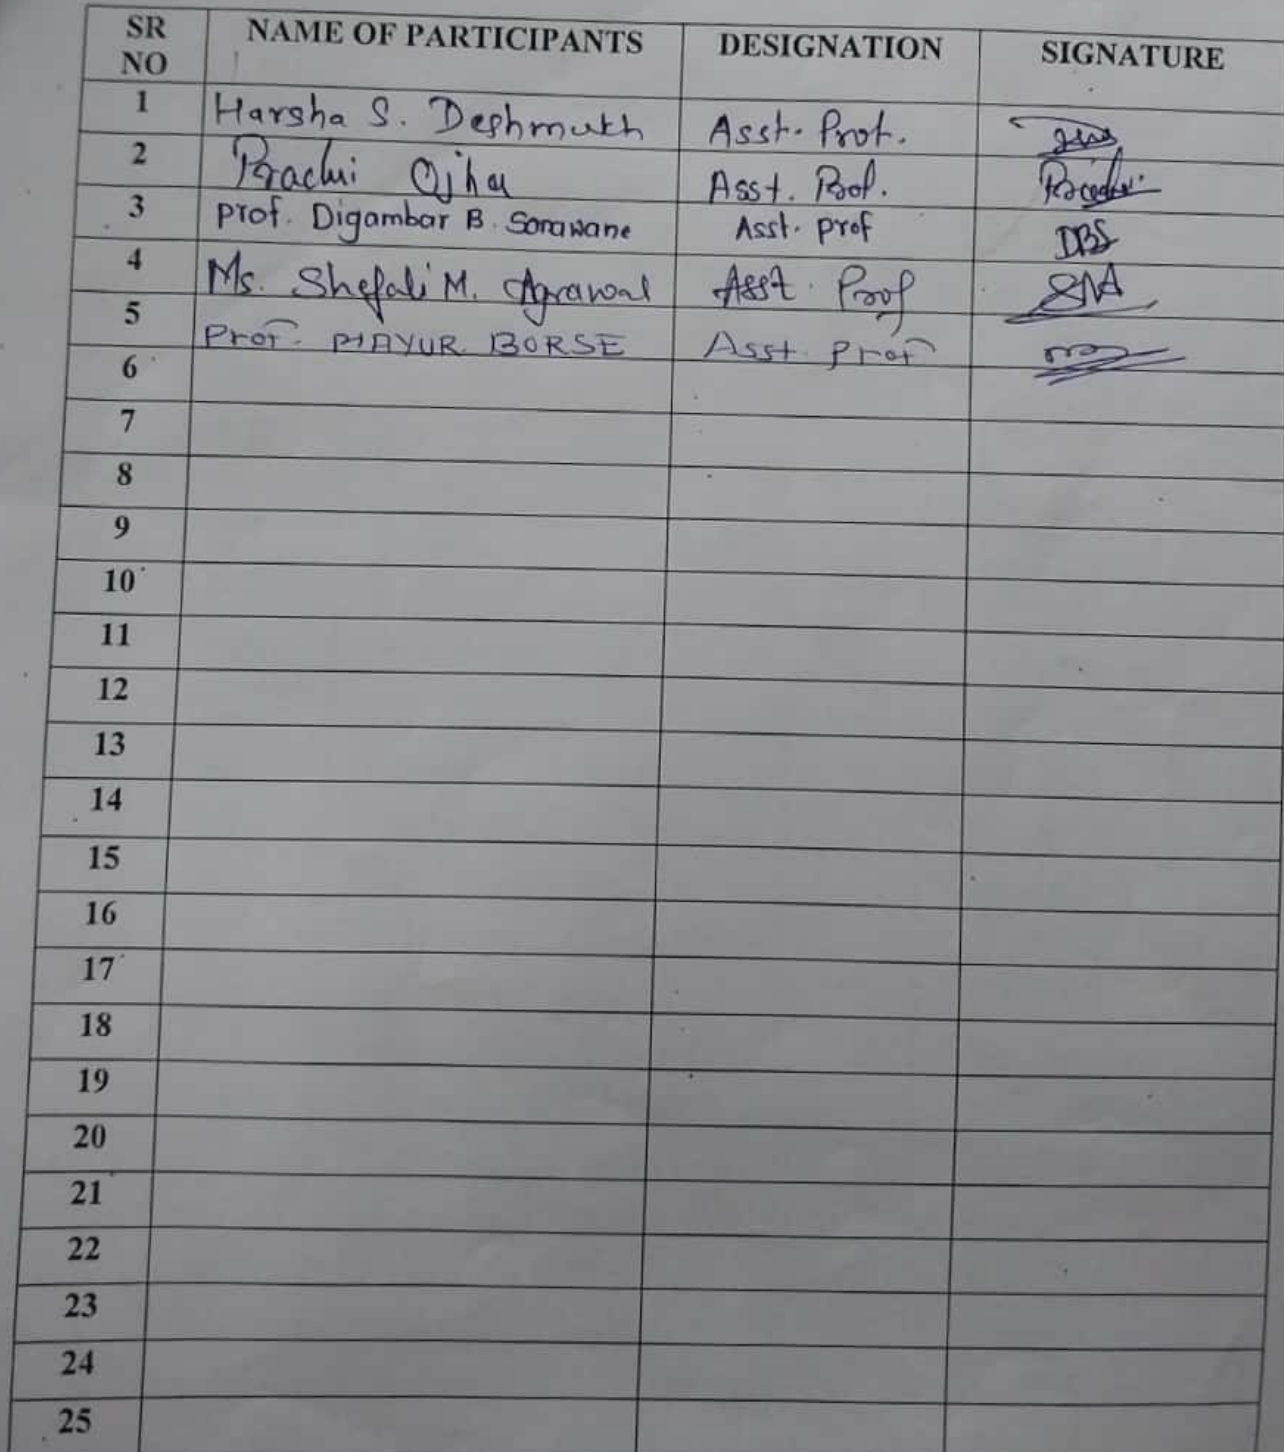 SR NO NAME OF PARTICIPANTS DESIGNATION SIGNATURE
1 Harsha S. Deshmukh Asst. Prof.
2 Prachi Ojha Asst. Prof.
3 Prof. Digambar B. Sonawane Asst. prof DBS
4 Ms. Shefali M. Agrawal Asst. Prof SMA
5 Prof. MAYUR BORSE Asst. Prof
6
7
8
9
10
11
12
13
14
15
16
17
18
19
20
21
22
23
24
25